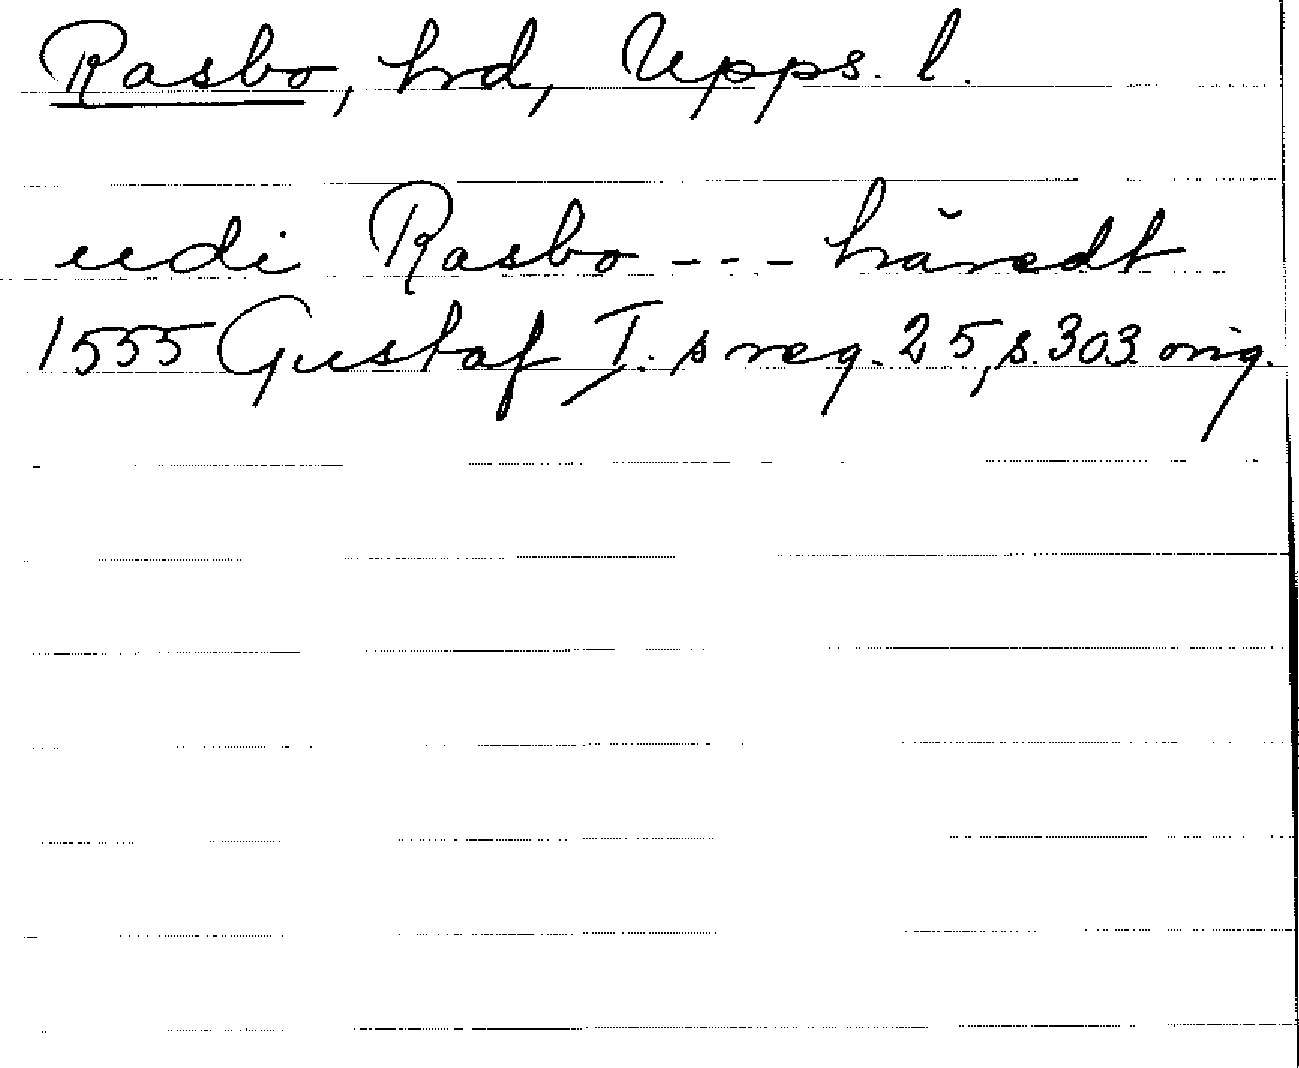 Rasbo, hrd, Upps. l.
udi Rasbo --- håredt
1555 Gustaf I. s reg. 25, s. 303 orig.